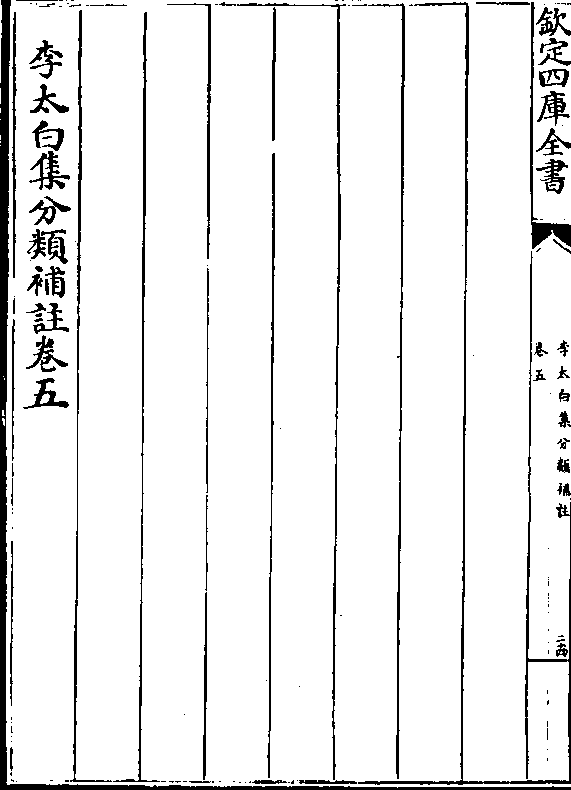 欽定四庫全書
李太白集分類補註
卷五
二十四
李太白集分類補註卷五